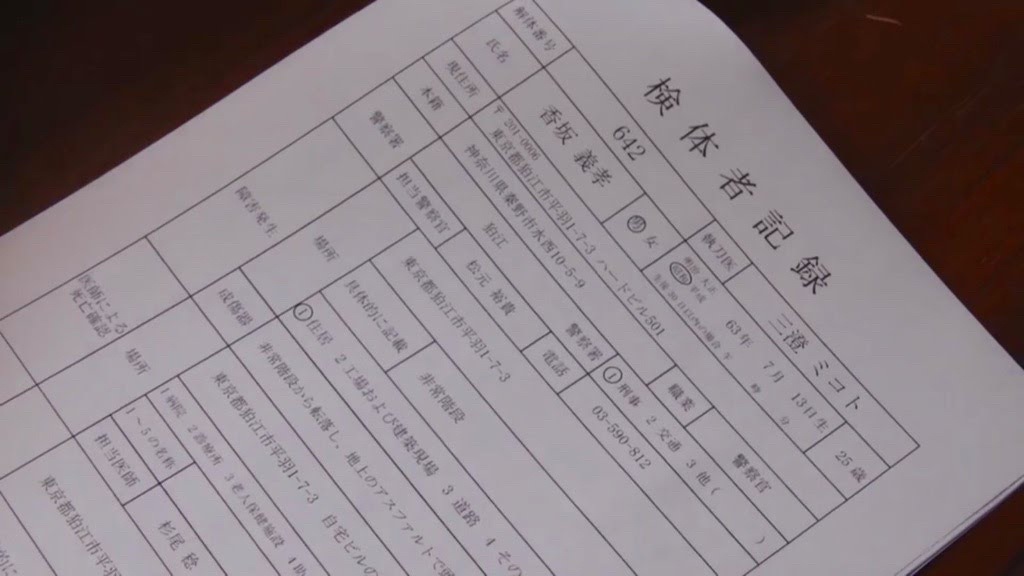 検体者記録
解体番号 642 執刀医 三澄 ミコト
氏名 香坂 義孝 男 女 明治 大正 昭和 平成 63年 7月 13日生 25歳
生後30日以内の場合 午 時 分
現住所 〒201-0006
東京都狛江市平羽1-7-3 ハードビル501 職業 警察官
本籍 神奈川県秦野市水西10-5-9
警察署 狛江 警察署 ①刑事 2 交通 3 他( )
担当警察官 松元 裕貴 電話 03-590-812
障害発生 場所 東京都狛江市平羽1-7-3
具体的に記載 非常階段
①住居 2 工場および建築現場 3 道路 4 その
成傷器 非常階段から転落し、地上のアスファルトで
医師による
死亡確認 場所 東京都狛江市平羽1-7-3 自宅ビルの
1 病院 2 診療所 3 老人保健施設 4 助
1～5の名称
担当医師 杉尾 稔
東京都狛江市平羽1-7-3